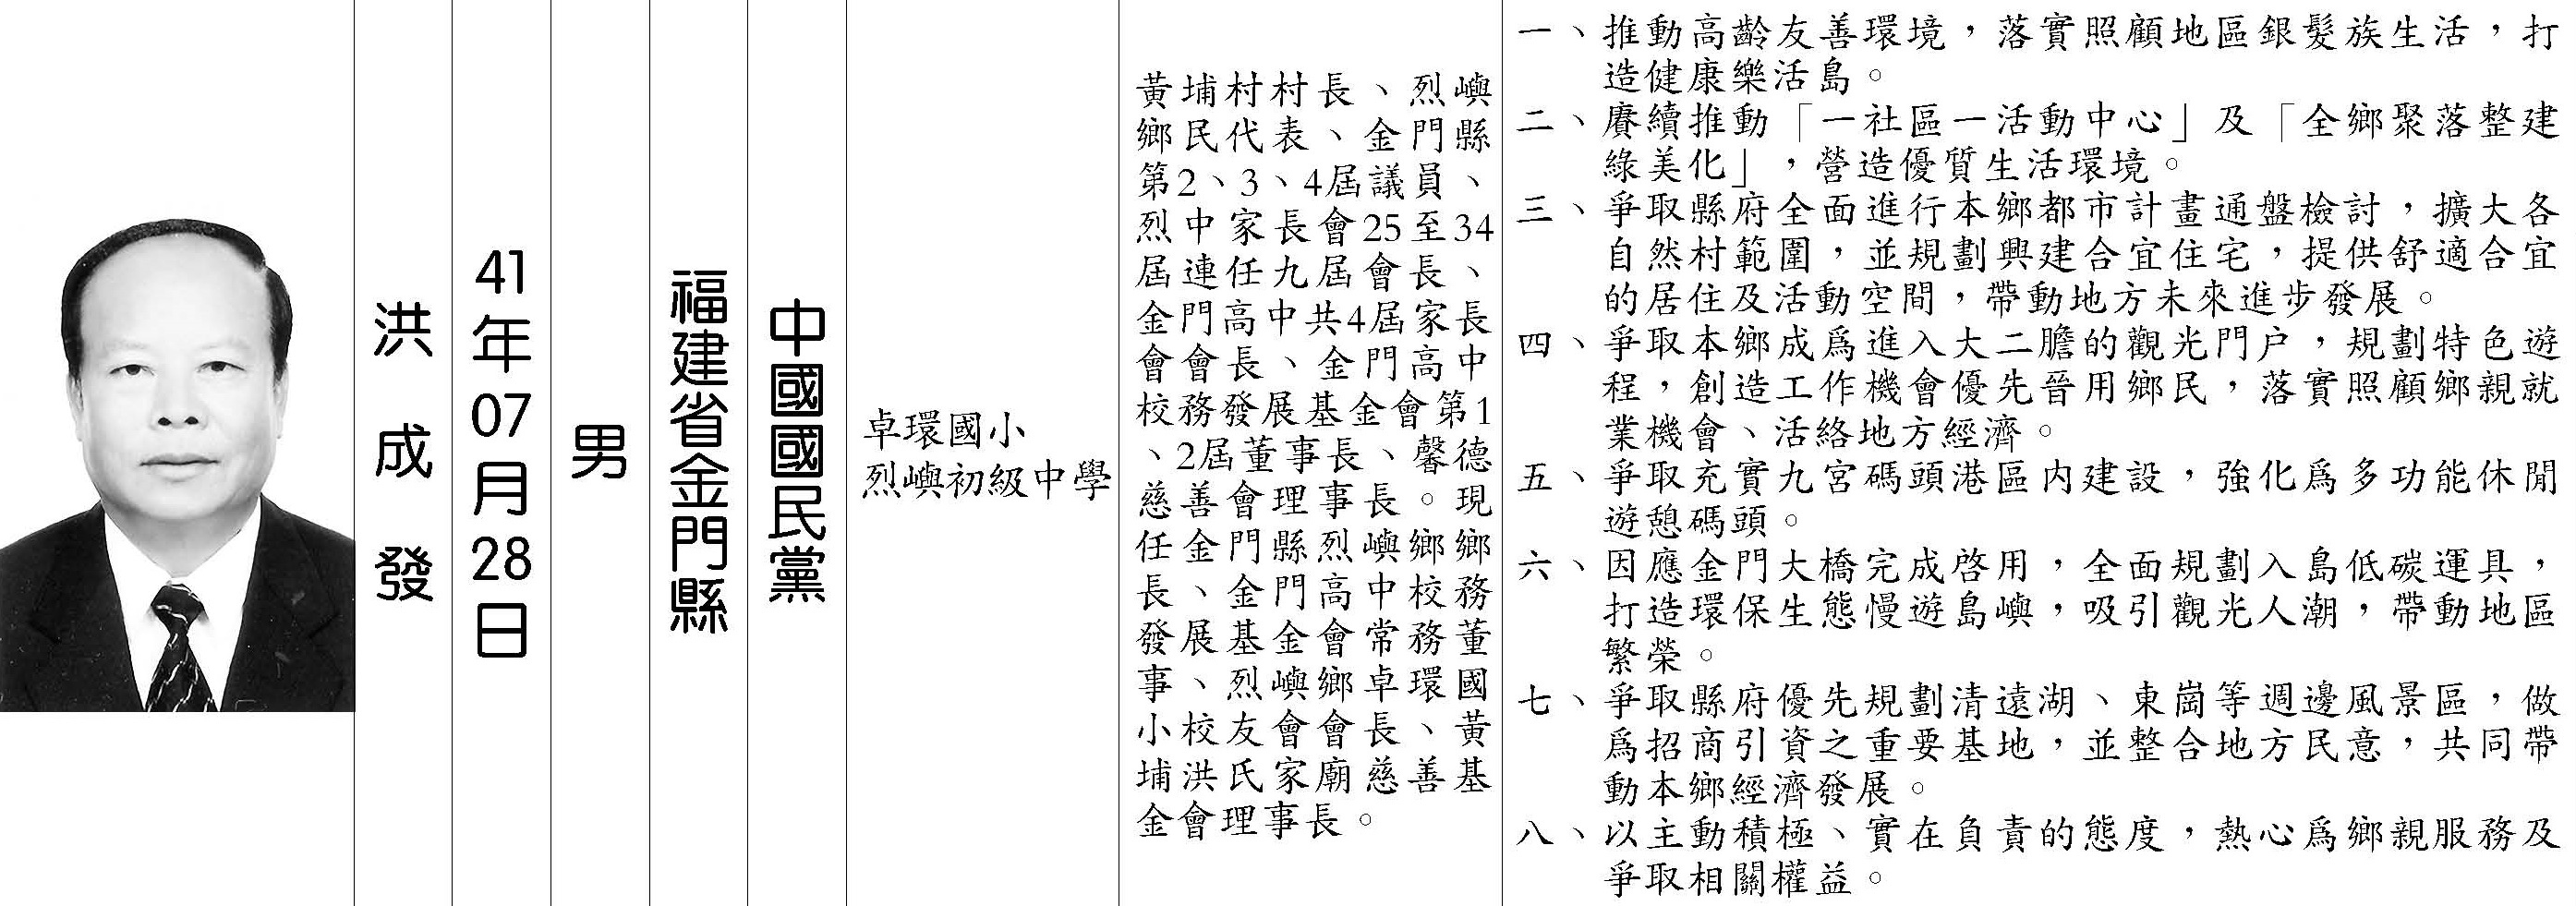 洪成發
41年07月28日
男
福建省金門縣
中國國民黨
卓環國小
烈嶼初級中學
黃埔村村長、烈嶼
鄉民代表、金門縣
第2、3、4屆議員、
烈中家長會25至34
屆連任九屆會長、
金門高中共4屆家長
會會長、金門高中
校務發展基金會第1
、2屆董事長、馨德
慈善會理事長。現
任金門縣烈嶼鄉鄉
長、金門高中校務
發展基金會常務董
事、烈嶼鄉卓環國
小校友會會長、黃
埔洪氏家廟慈善基
金會理事長。
一、推動高齡友善環境，落實照顧地區銀髮族生活，打
造健康樂活島。
二、賡續推動「一社區一活動中心」及「全鄉聚落整建
綠美化」，營造優質生活環境。
三、爭取縣府全面進行本鄉都市計畫通盤檢討，擴大各
自然村範圍，並規劃興建合宜住宅，提供舒適合宜
的居住及活動空間，帶動地方未來進步發展。
四、爭取本鄉成為進入大二膽的觀光門戶，規劃特色遊
程，創造工作機會優先晉用鄉民，落實照顧鄉親就
業機會、活絡地方經濟。
五、爭取充實九宮碼頭港區內建設，強化為多功能休閒
遊憩碼頭。
六、因應金門大橋完成啓用，全面規劃入島低碳運具，
打造環保生態慢遊島嶼，吸引觀光人潮，帶動地區
繁榮。
七、爭取縣府優先規劃清遠湖、東崗等週邊風景區，做
為招商引資之重要基地，並整合地方民意，共同帶
動本鄉經濟發展。
八、以主動積極、實在負責的態度，熱心為鄉親服務及
爭取相關權益。